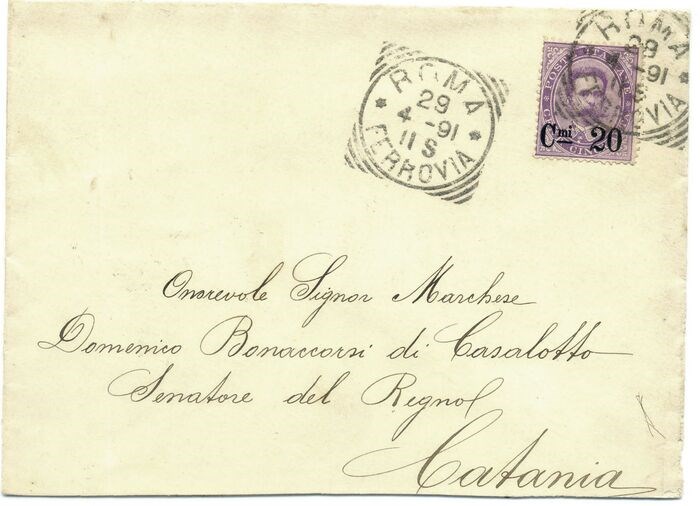 ROMA
29
4 - 91
11 S
FERROVIA
ROMA
29
4 - 91
FERROVIA
POSTE ITALIANE
Cmi 20
Onorevole Signor Marchese
Domenico Bonaccorsi di Casalotto
Senatore del Regno
Catania